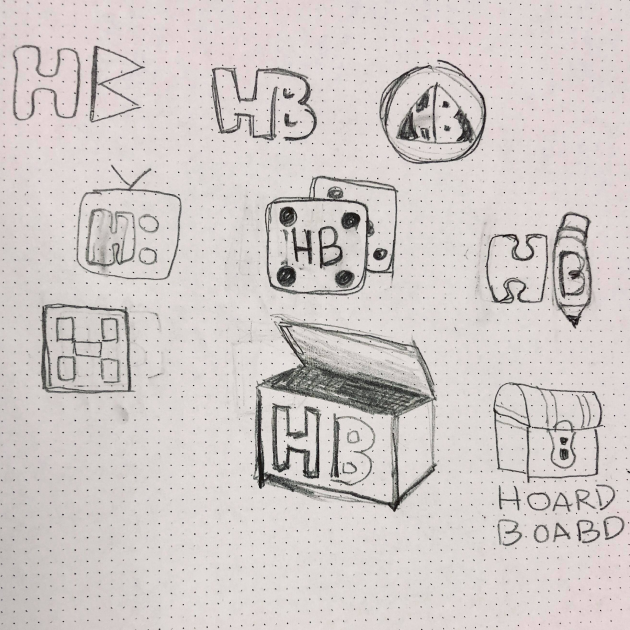 HB
HB
B
H
HB
HB
HB
HOARD
BOABD